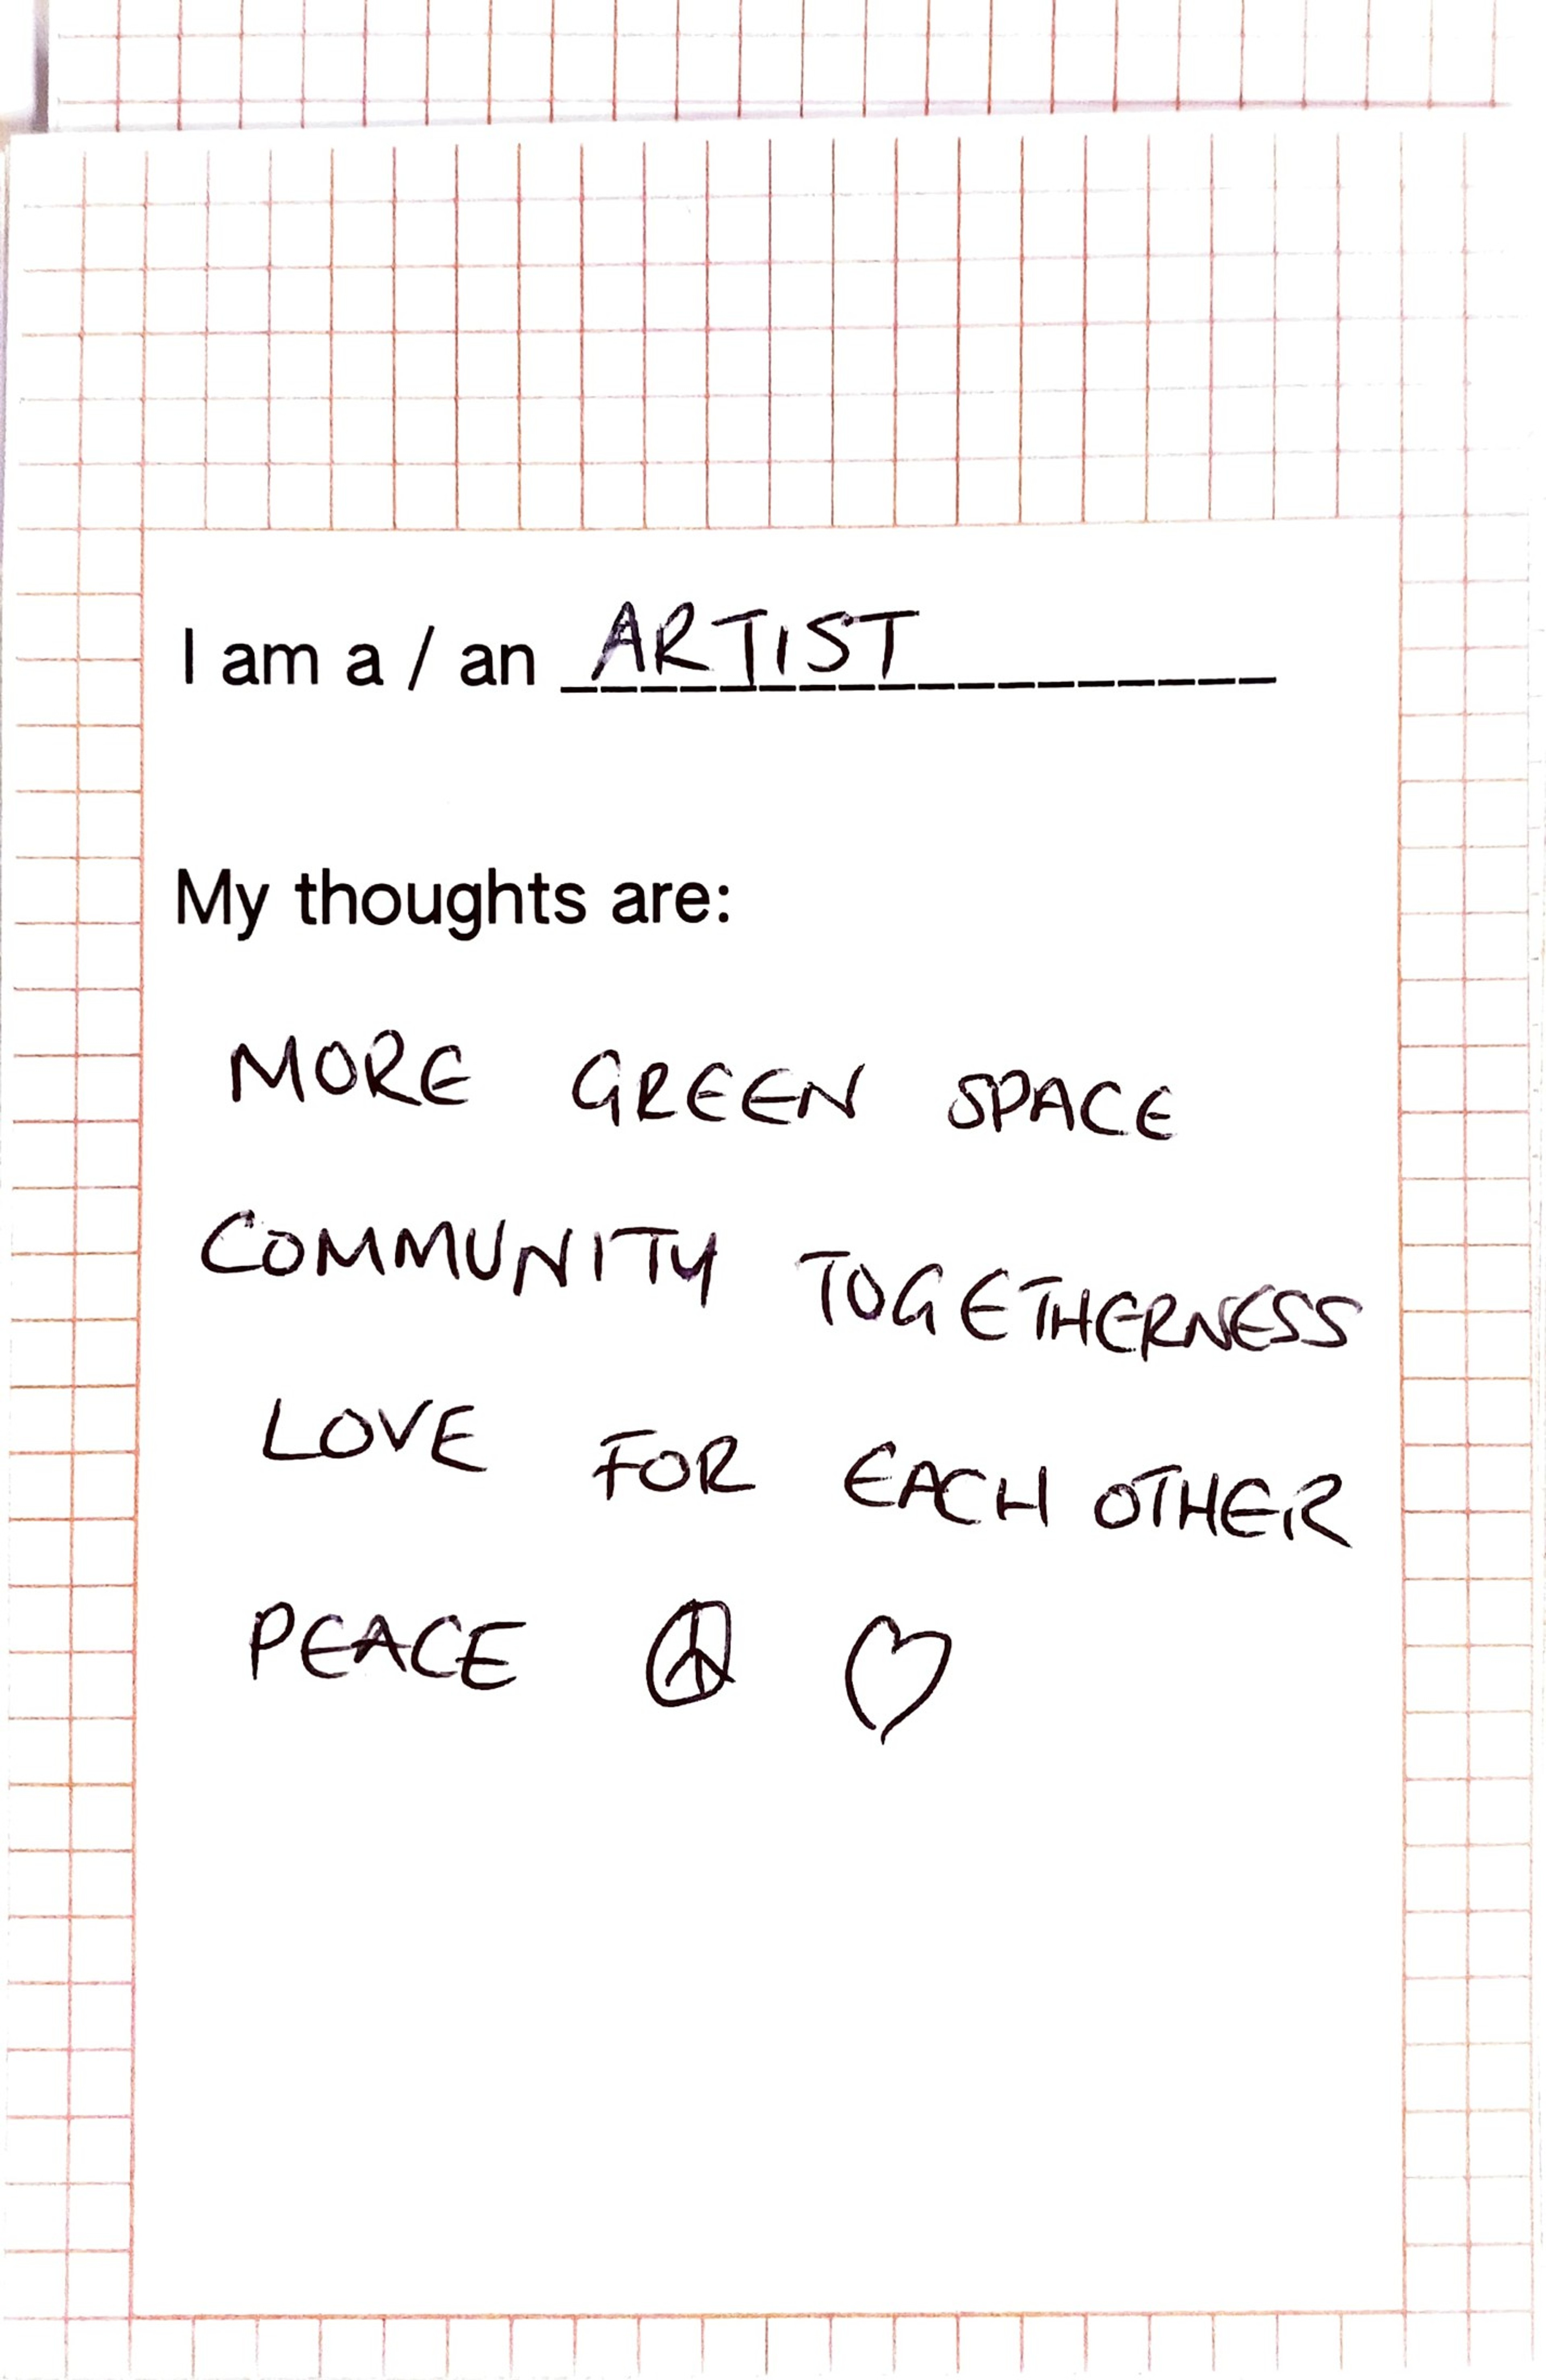 I am a / an ARTIST
My thoughts are:
MORE GREEN SPACE
COMMUNITY TOGETHERNESS
LOVE FOR EACH OTHER
PEACE ☮ ♡